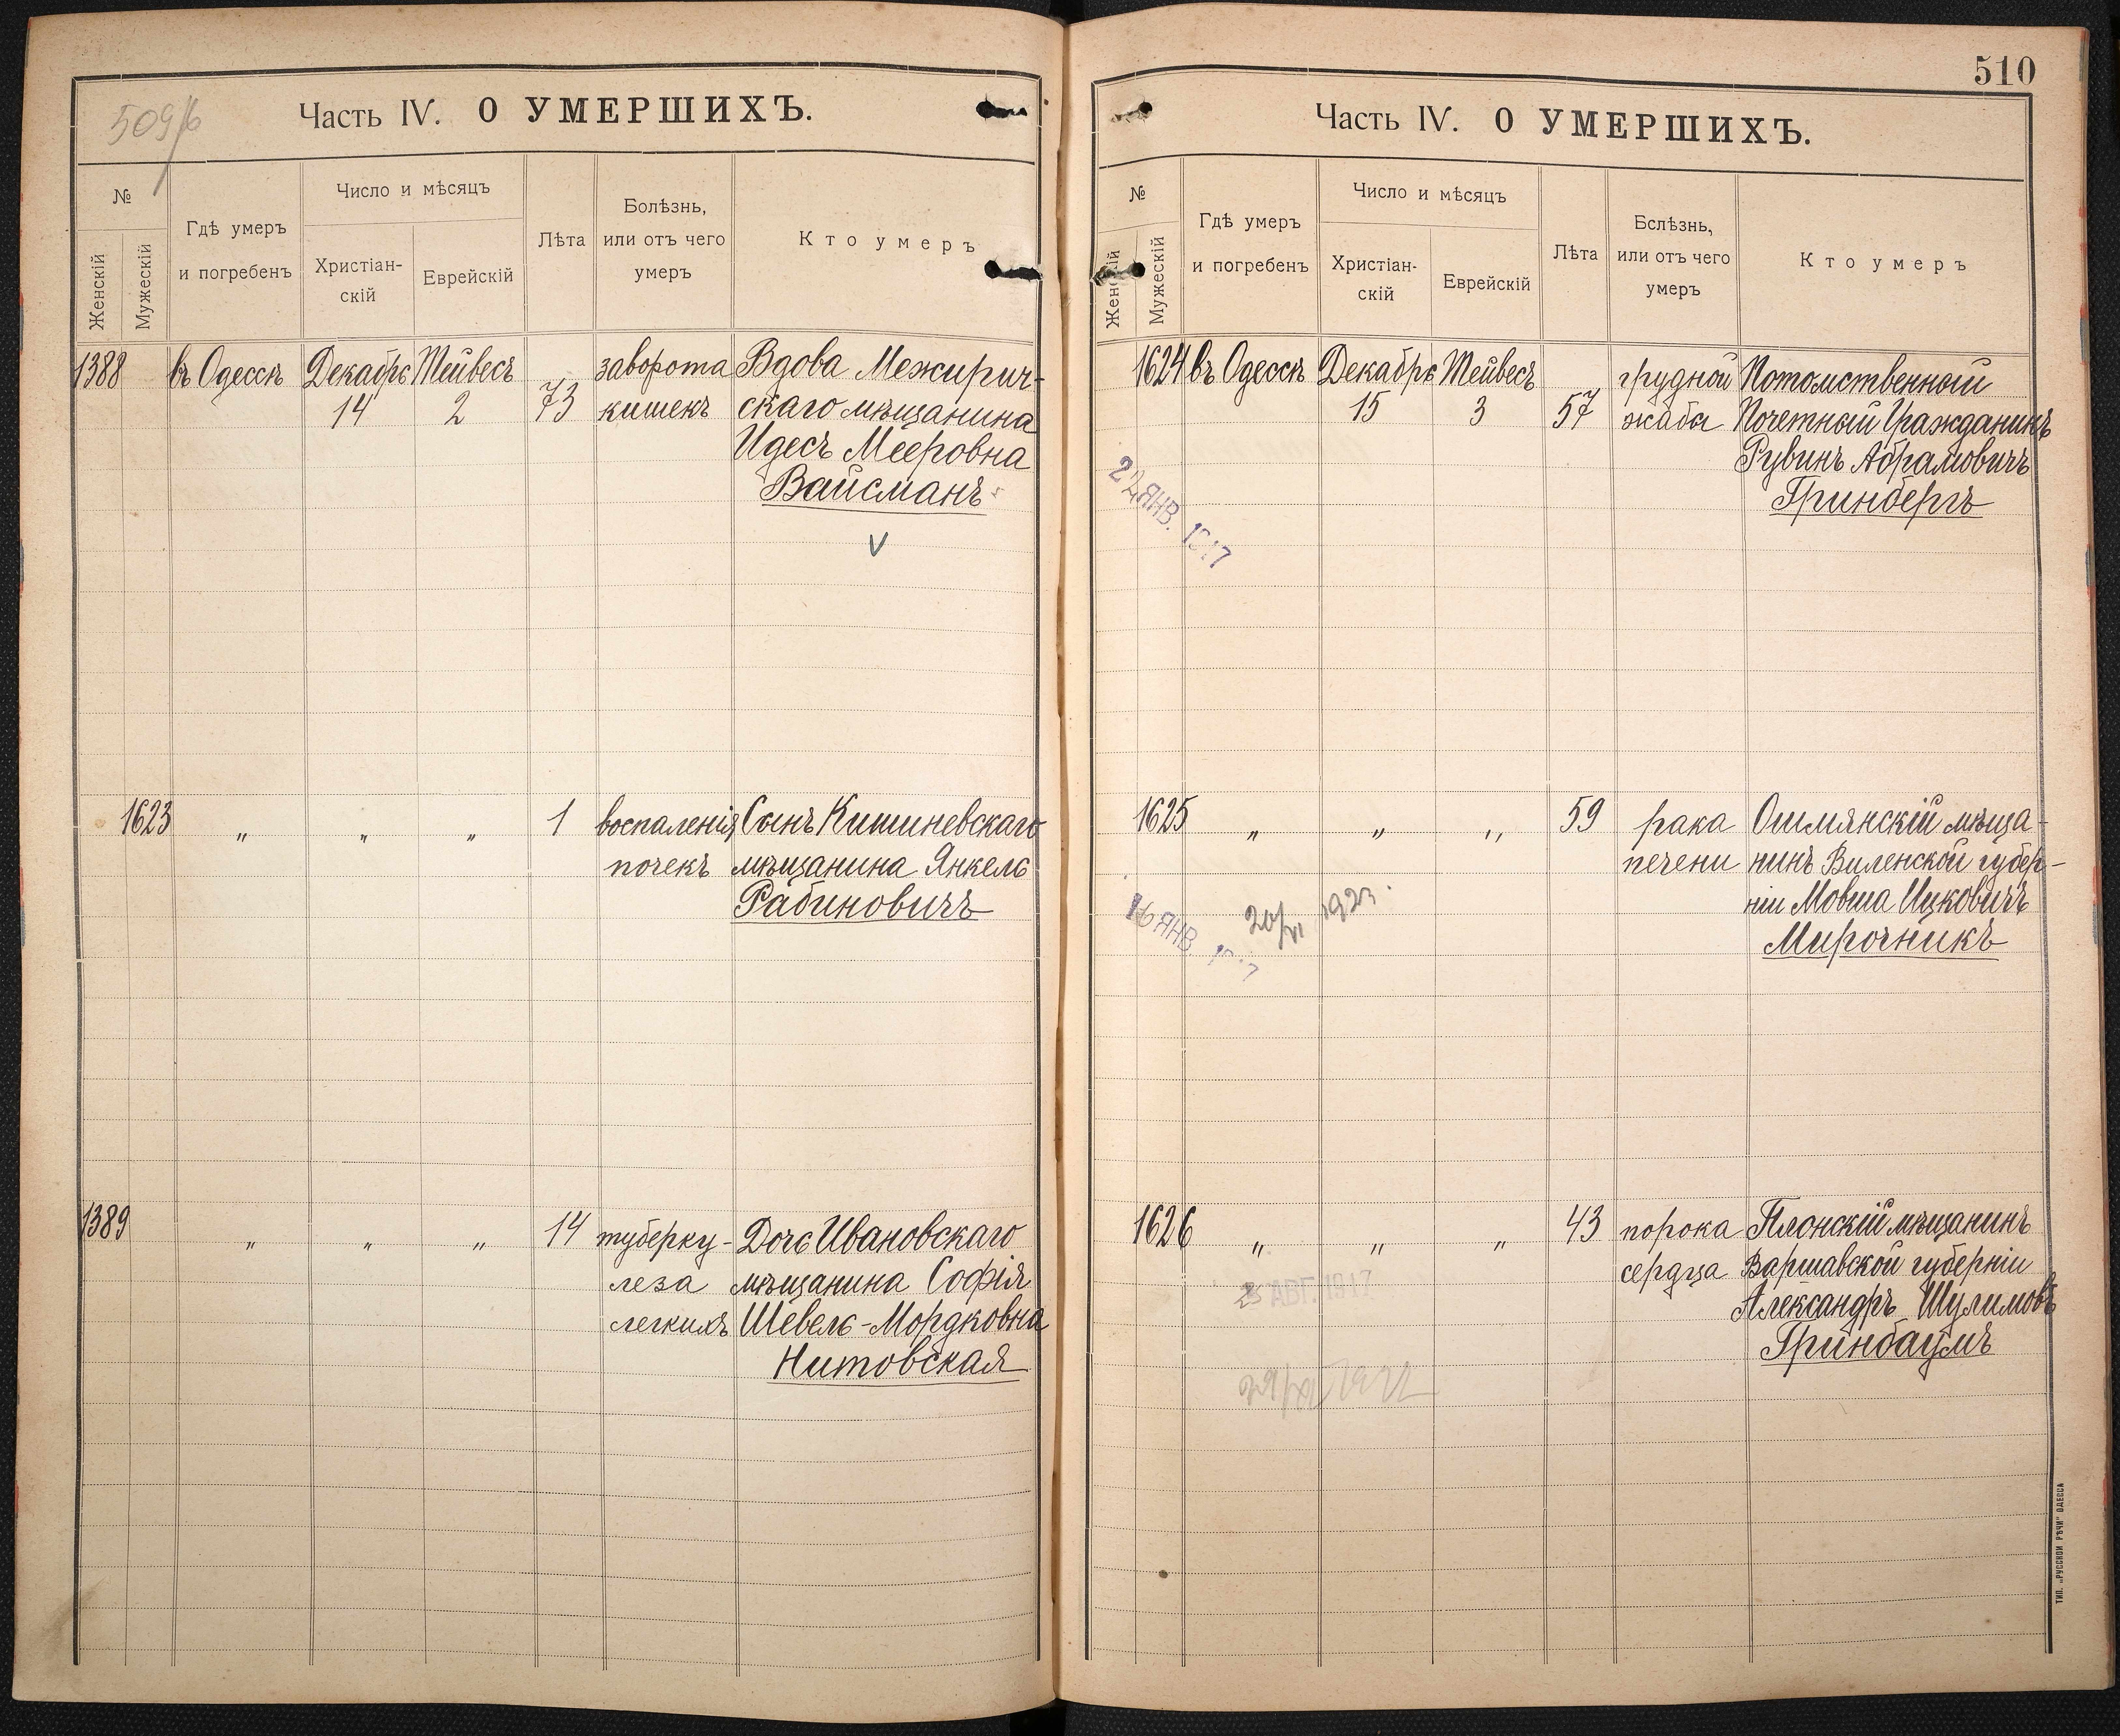 509/б
Часть IV. О УМЕРШИХЪ.
№
Женскій
Мужескій
Гдѣ умеръ
и погребенъ
Число и мѣсяцъ
Христіан-
скій
Еврейскій
Лѣта
Болѣзнь,
или отъ чего
умеръ
Кто умеръ
1388 въ Одессѣ Декабрь Тейвесъ заворота Вдова Межирич-
14 2 73 кишекъ скаго мѣщанина
Идесъ Мееровна
Вайсманъ
V
1623 " " " 1 воспаленія Сынъ Кишиневскаго
почекъ мѣщанина Янкель
Рабиновичъ
1389 " " " 14 туберку- Дочь Ивановскаго
леза мѣщанина Софія
легкихъ Шевель-Мордковна
Нитовская
510
Часть IV. О УМЕРШИХЪ.
№
Женскій
Мужескій
Гдѣ умеръ
и погребенъ
Число и мѣсяцъ
Христіан-
скій
Еврейскій
Лѣта
Бслѣзнь,
или отъ чего
умеръ
Кто умеръ
1624 въ Одессѣ Декабрь Тейвесъ грудной Потомственный
15 3 57 жабы Почетный Гражданинъ
Рувинъ Абрамовичъ
Гринбергъ
ЯНВ. 1917
1625 " " " 59 рака Ошмянскій мѣща-
печени нинъ Виленской губер-
ніи Мовша Ицковичъ
Мирочникъ
16 ЯНВ.
20/VI 1923.
1626 " " " 43 порока Плонскій мѣщанинъ
сердца Варшавской губерніи
Александръ Шулимовъ
Гринбаумъ
АВГ. 1917
ТИП. „РУССКОЙ РѢЧИ" ОДЕССА